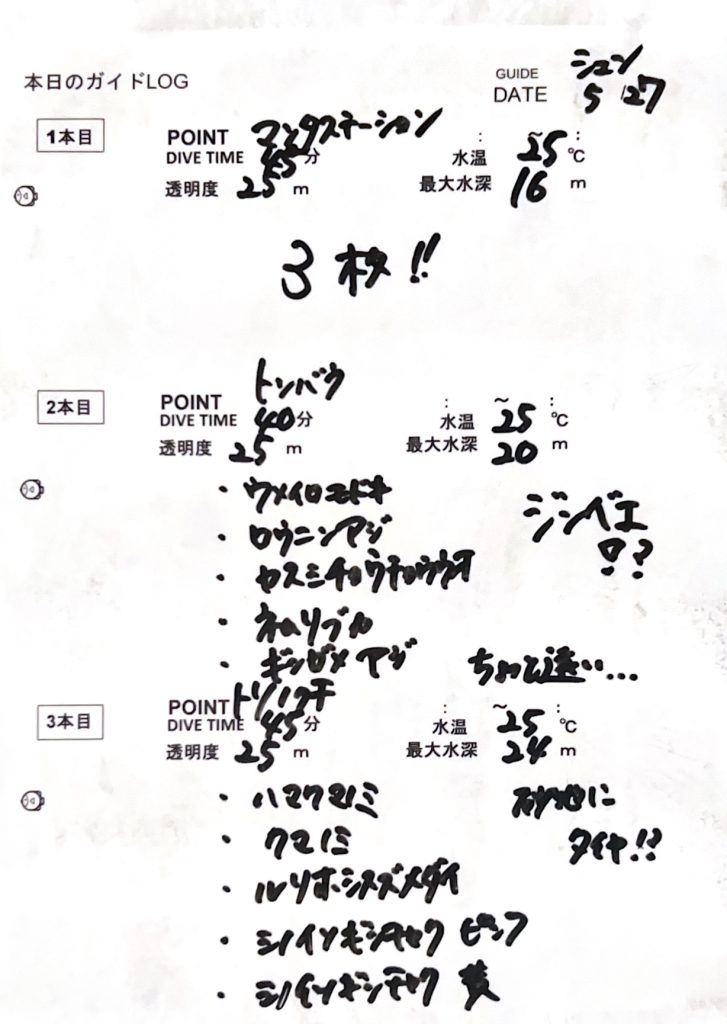 本日のガイドLOG
GUIDE シュン
DATE 5/27
1本目
POINT マンタステーション
DIVE TIME 45分
: ~ :
水温 25℃
透明度 25m
最大水深 16m
3枚!!
2本目
POINT トンバラ
DIVE TIME 40分
: ~ :
水温 25℃
透明度 25m
最大水深 20m
・ウメイロモドキ
・ロウニンアジ
・カスミチョウチョウウオ
・ネムリブカ
・ギンガメアジ
ジンベエ
!?
ちょっと遠い...
3本目
POINT トリノクチ
DIVE TIME 45分
: ~ :
水温 25℃
透明度 25m
最大水深 24m
・ハマクマノミ
・クマノミ
・ルリホシスズメダイ
・シライトイソギンチャク ピンク
砂地に
タイヤ!!